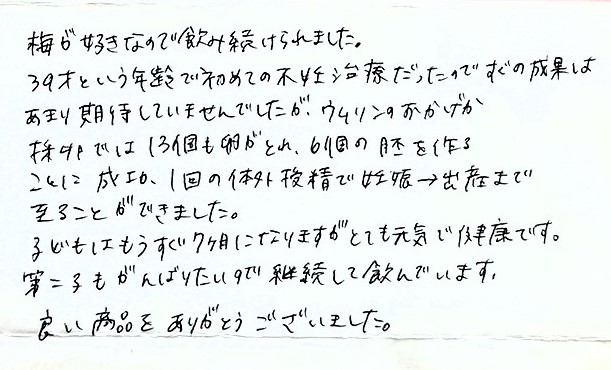 梅が好きなので飲み続けられました。
39才という年齢で初めての不妊治療だったのですぐの成果は
あまり期待していませんでしたが、ウムリンのおかげか
採卵では13個も卵がとれ、6個の胚を作る
ことに成功、1回の体外授精で妊娠→出産まで
至ることができました。
子どもはもうすぐ7ヶ月になりますがとても元気で健康です。
第二子もがんばりたいので継続して飲んでいます。
良い商品をありがとうございました。